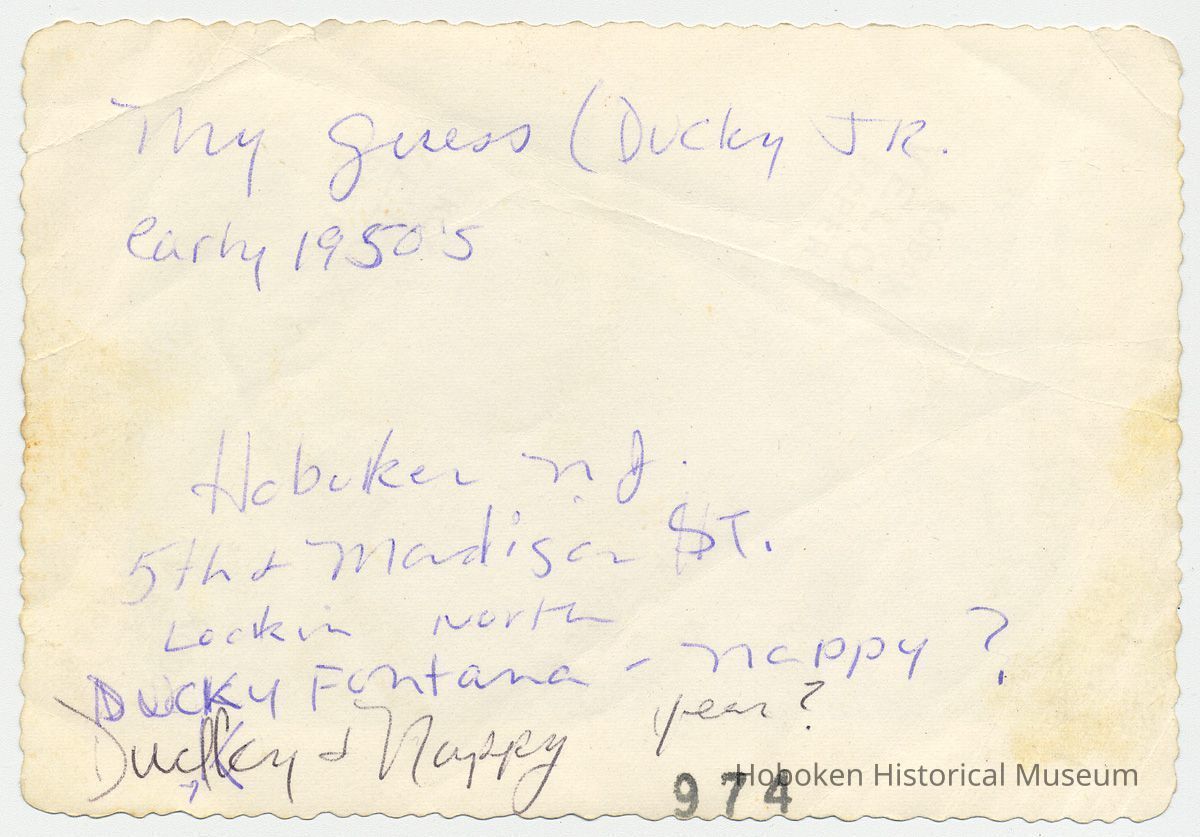 My guess (Ducky JR.
early 1950's
Hoboken N.J.
5th & Madison ST.
Lookin North
Ducky Fontana - Nappy ?
year?
Ducky & Nappy
974
Hoboken Historical Museum